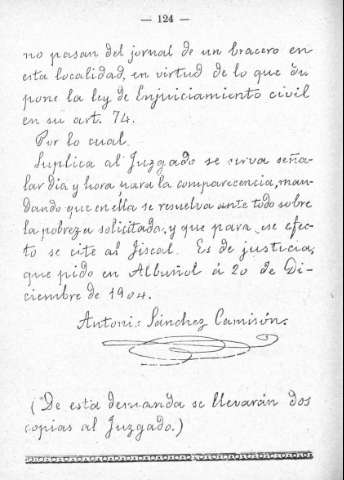 — 124 —
no pasan del jornal de un bracero en
esta localidad, en virtud de lo que dis
pone la ley de Enjuiciamiento civil
en su art. 74.
Por lo cual.
Suplica al Juzgado se sirva seña-
lar dia y hora para la comparecencia, man-
dando que en ella se resuelva ante todo sobre
la pobreza solicitada, y que para ese efec-
to se cite al Fiscal. Es de justicia,
que pido en Albuñol á 20 de Di-
ciembre de 1904.
Antonio Sánchez Camisón.
(De esta demanda se llevarán dos
copias al Juzgado.)